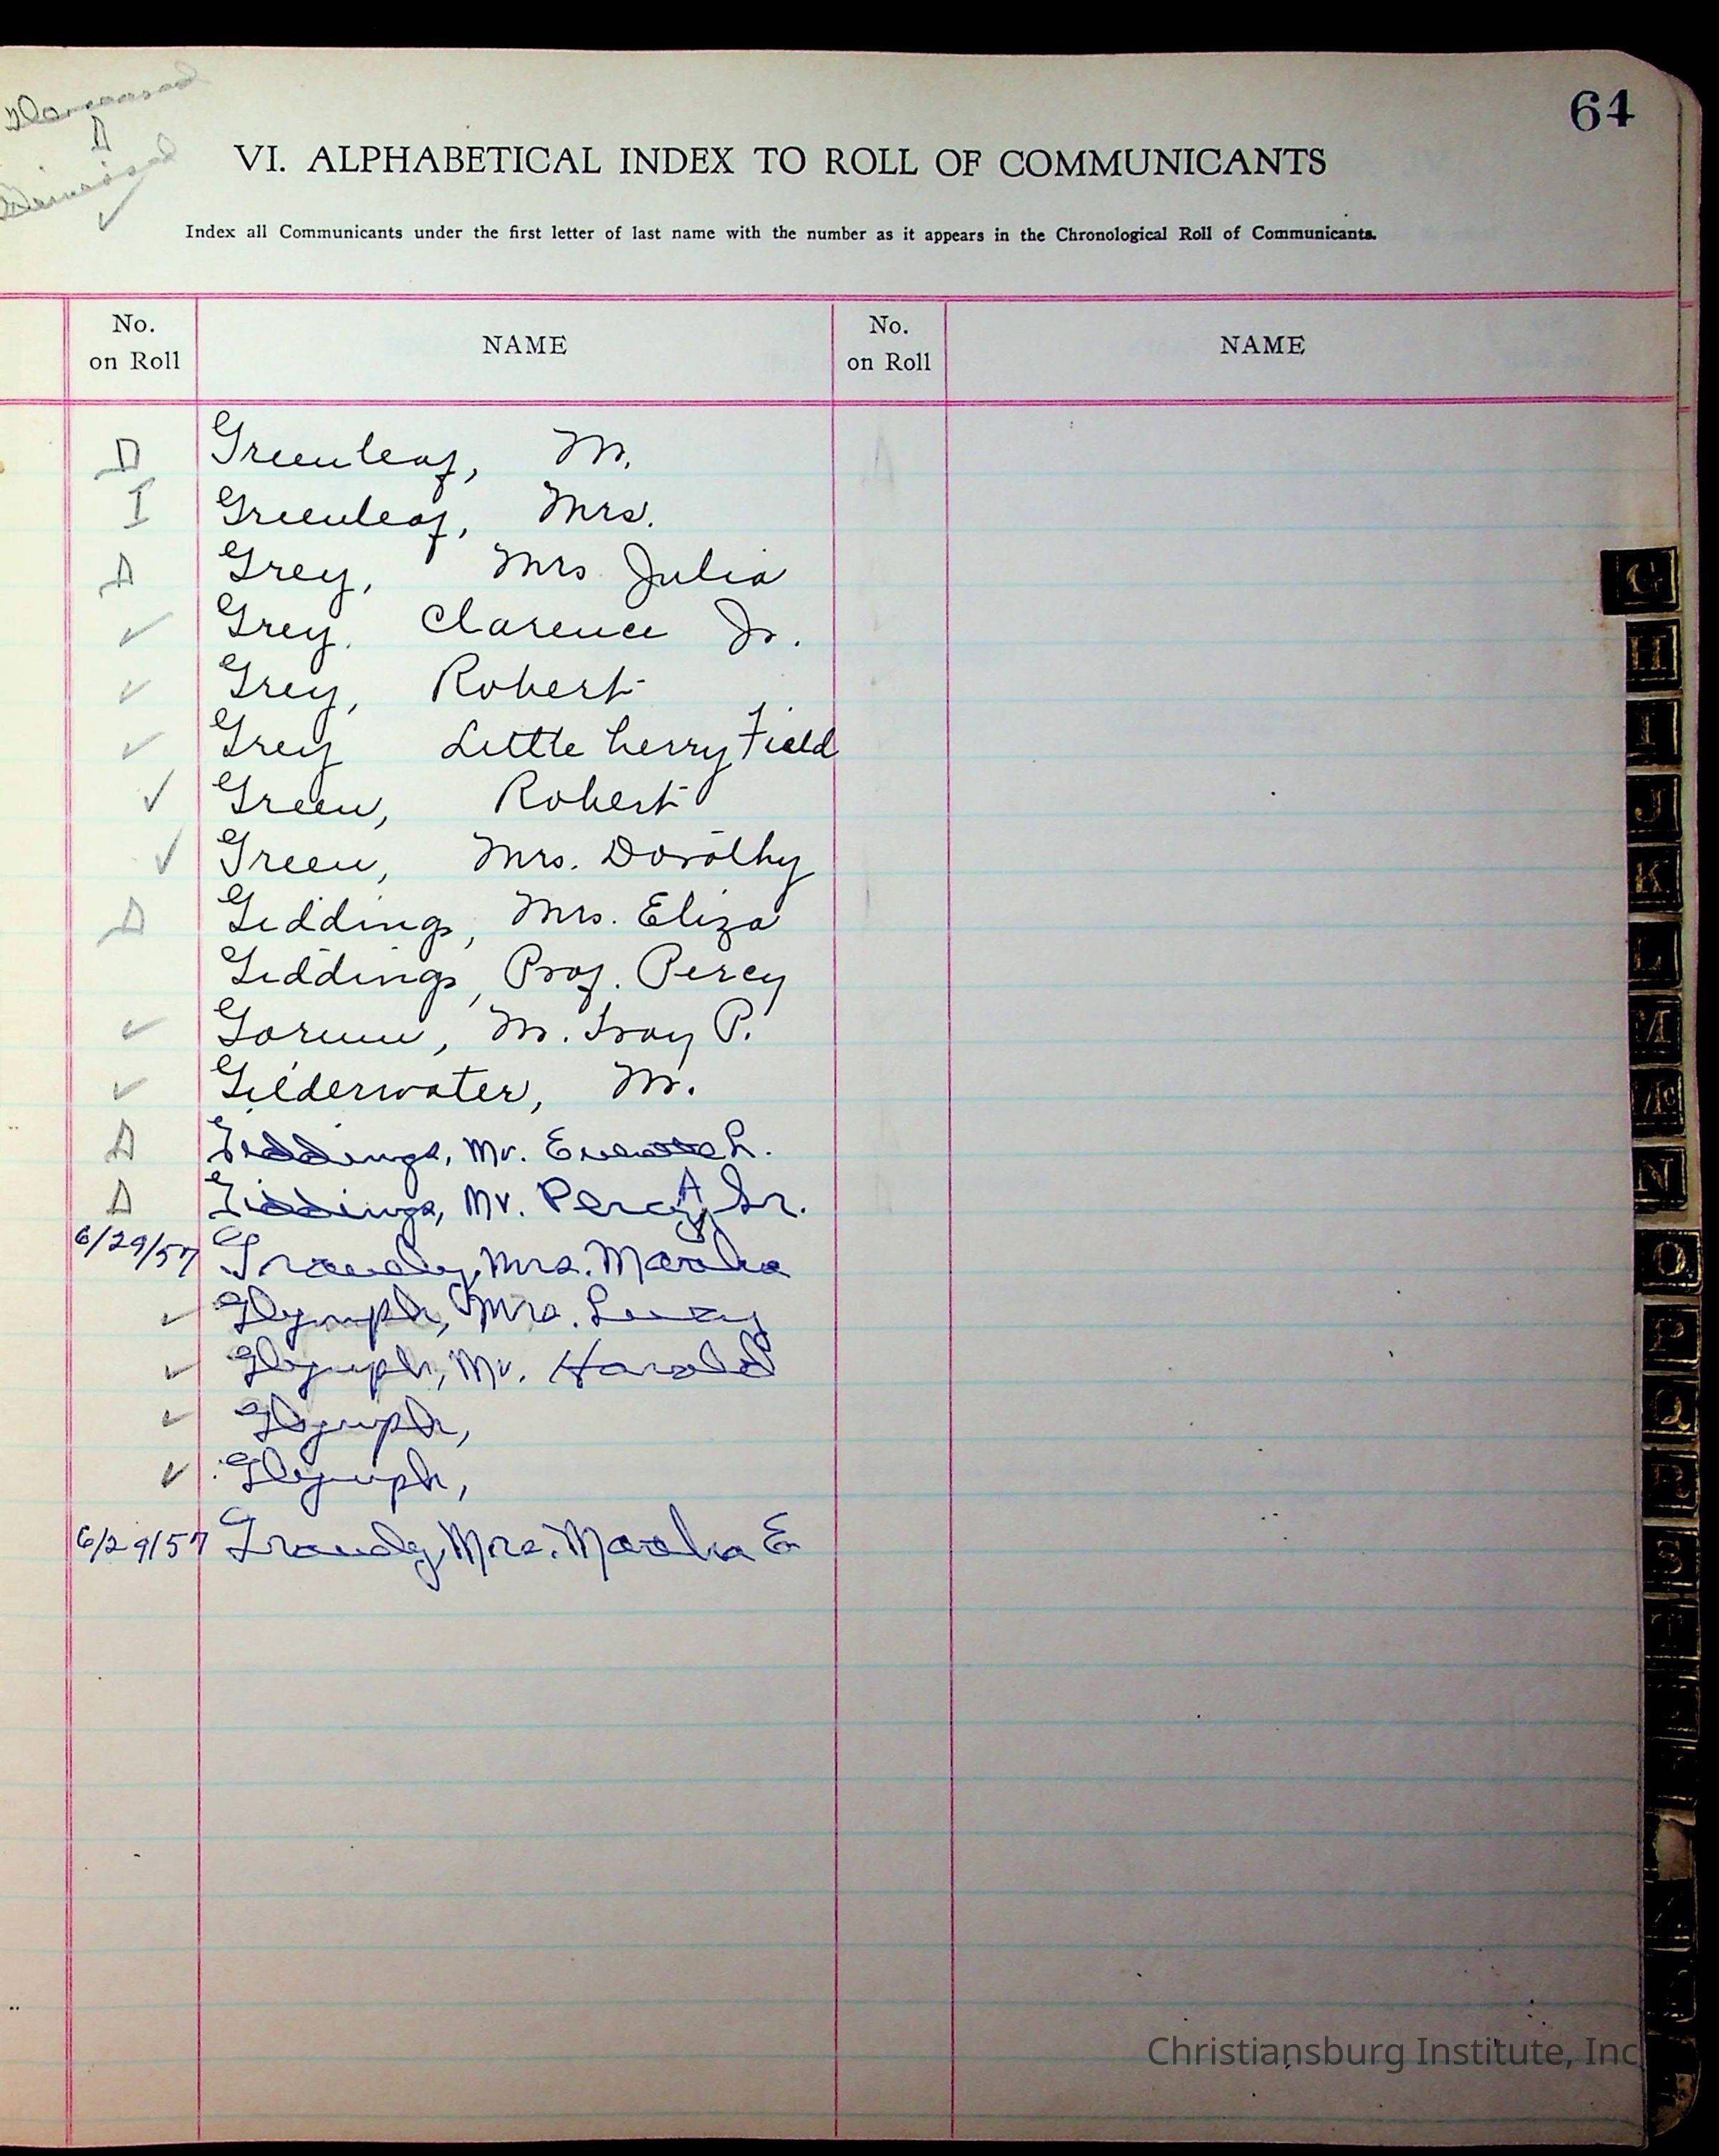 64
Deceased
D
Dismissed
✓
VI. ALPHABETICAL INDEX TO ROLL OF COMMUNICANTS
Index all Communicants under the first letter of last name with the number as it appears in the Chronological Roll of Communicants.
No. on Roll NAME No. on Roll NAME
D Greenleaf, M.
I Greenleaf, Mrs.
D Grey, Mrs Julia
✓ Grey, Clarence Jr.
✓ Grey, Robert
✓ Grey Little berry Field
✓ Green, Robert
✓ Green, Mrs. Dorothy
D Giddings, Mrs. Eliza
Giddings, Prof. Percy
✓ M. P.
✓ Gilderwater, M.
D Giddings, Mr. L.
D Giddings, Mr. Percy A Sr.
6/29/57 Grandy, Mrs. Martha
✓ Glymph, Mrs. Lucy
✓ Glymph, Mr. Harold
✓ Glymph,
✓ Glymph,
6/29/57 Grandy, Mrs. Martha E
G
H
I
J
K
L
M
Mc
N
O
P
Q
R
S
Christiansburg Institute, Inc